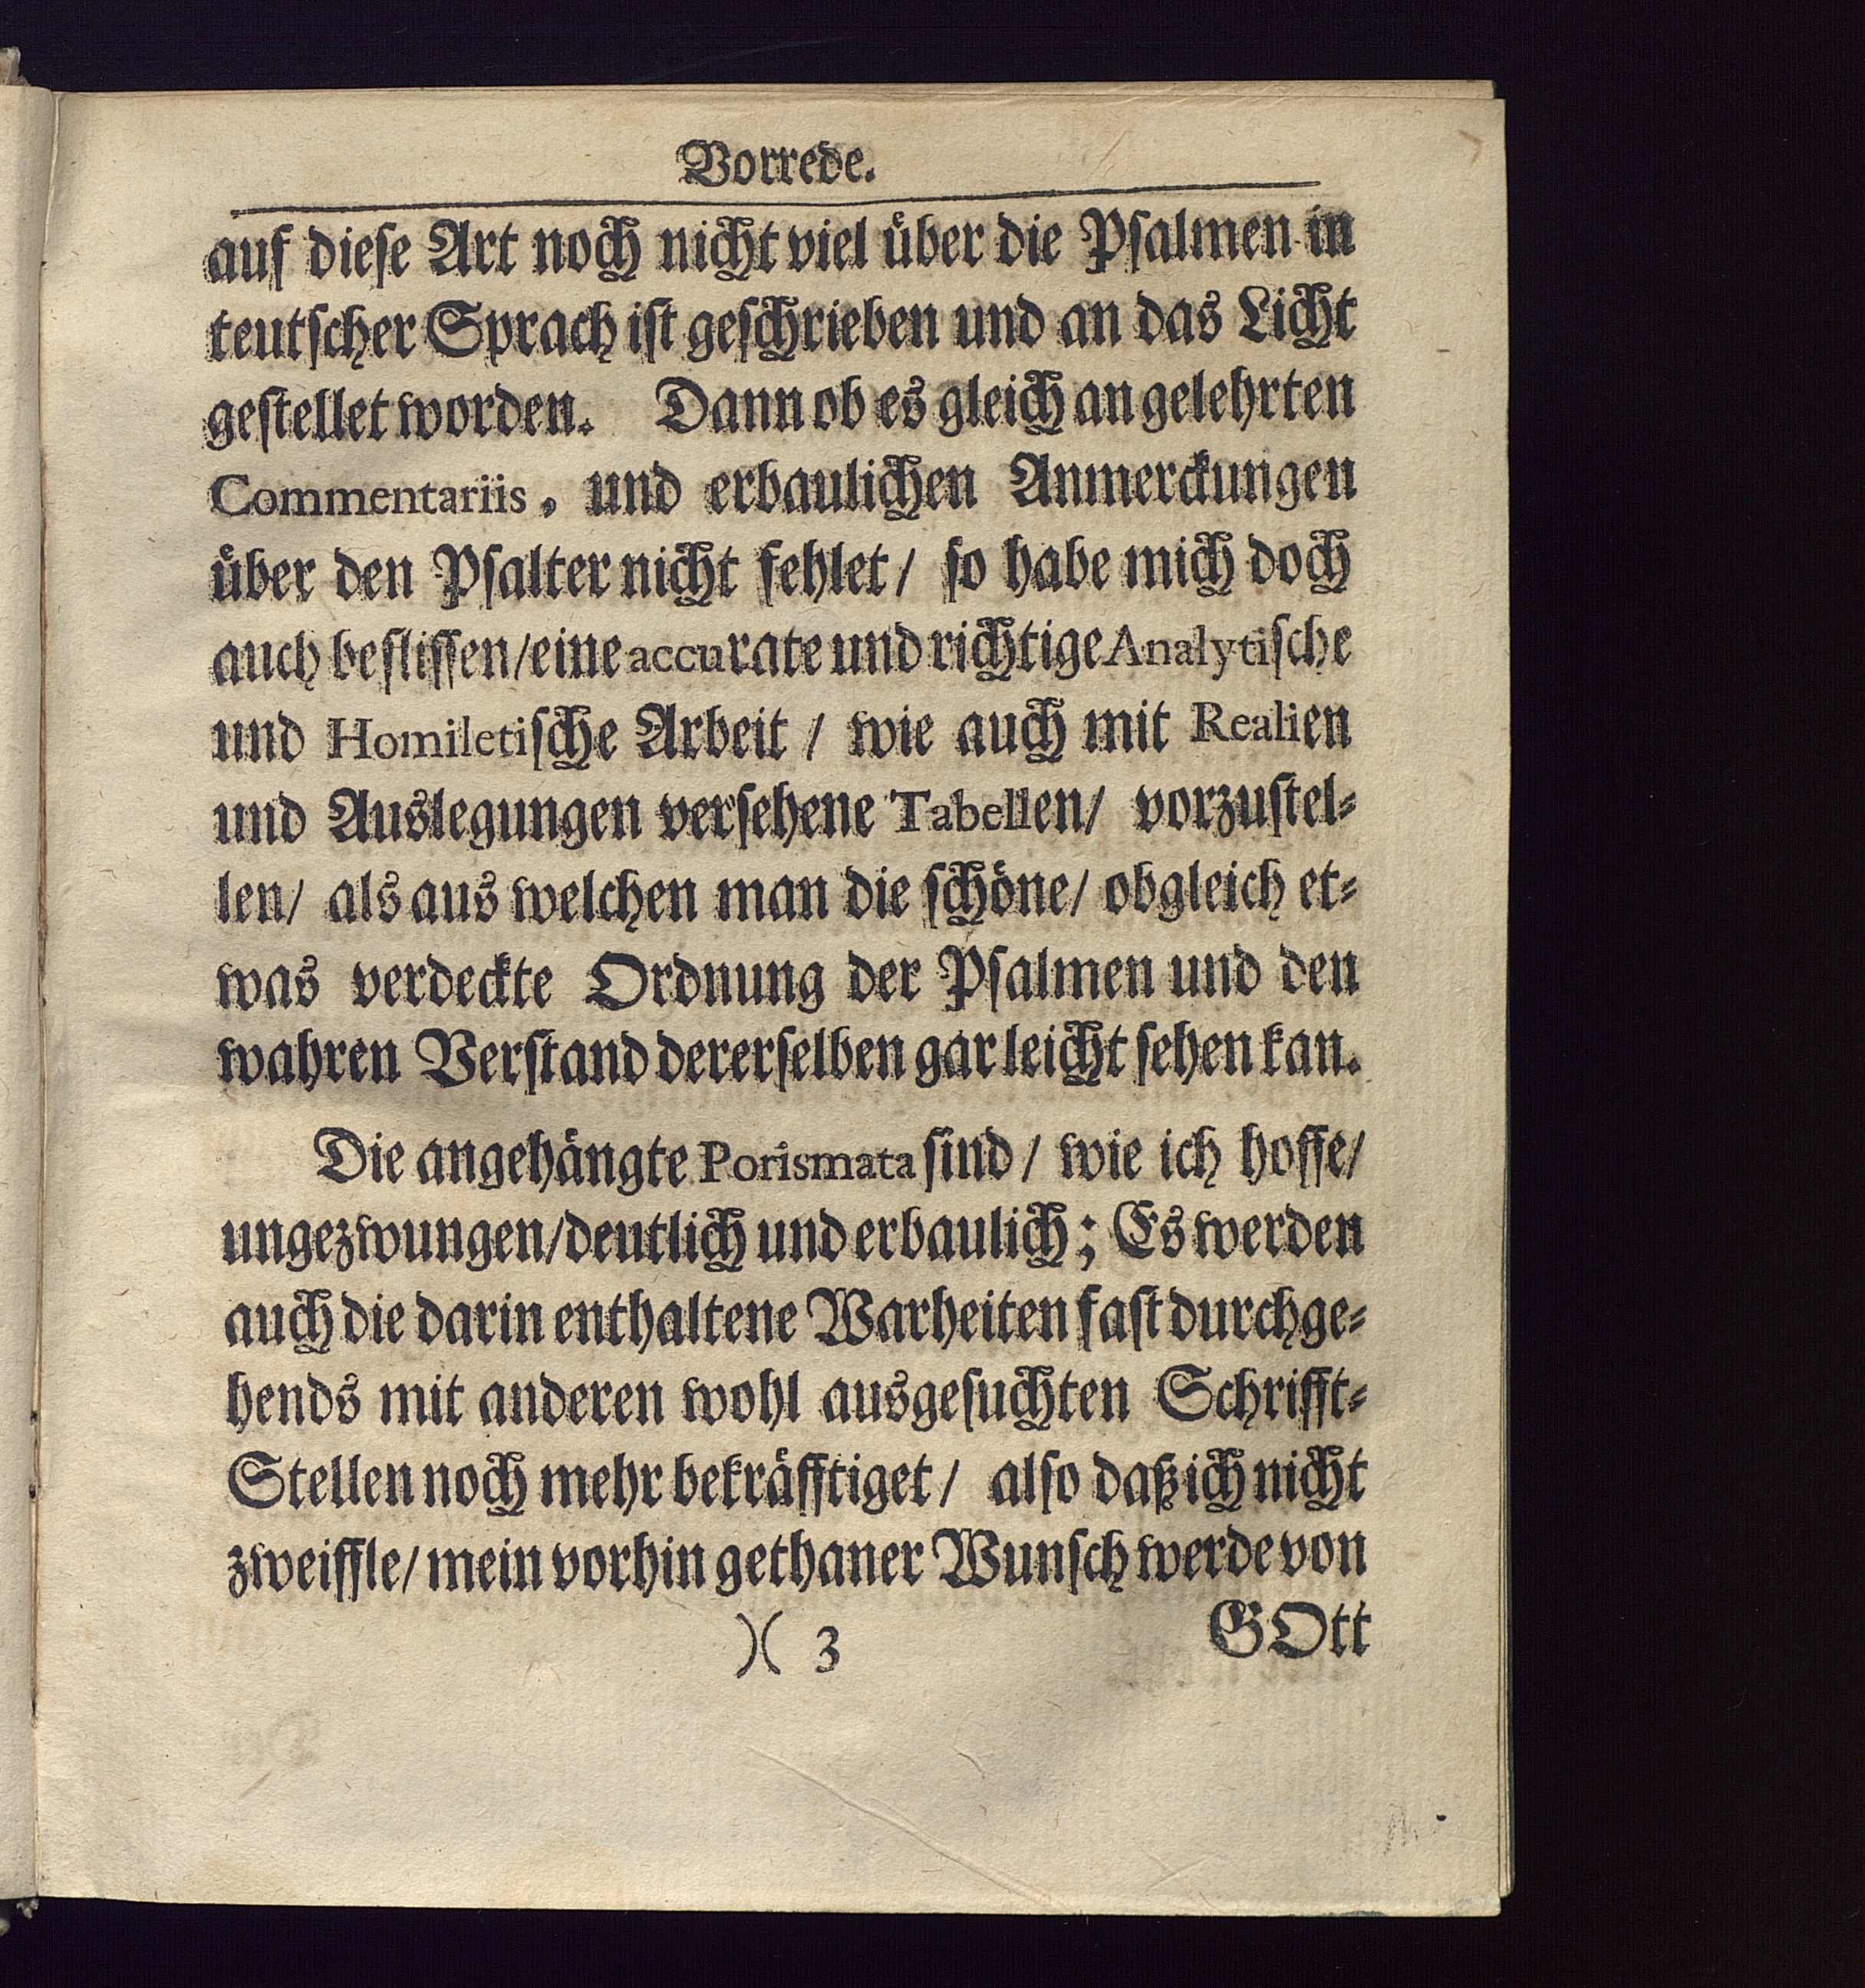 Vorrede.
auf dieſe Art noch nicht viel über die Pſalmen in
teutſcher Sprach iſt geſchrieben und an das Licht
geſtellet worden. Dann ob es gleich an gelehrten
Commentariis, und erbaulichen Anmerckungen
über den Pſalter nicht fehlet/ ſo habe mich doch
auch befliſſen/ eine accurate und richtige Analytiſche
und Homiletiſche Arbeit / wie auch mit Realien
und Auslegungen verſehene Tabellen/ vorzuſtel⸗
len/ als aus welchen man die ſchöne/ obgleich et⸗
was verdeckte Ordnung der Pſalmen und den
wahren Verſtand dererſelben gar leicht ſehen kan.
Die angehängte Porismata ſind / wie ich hoffe/
ungezwungen/ deutlich und erbaulich; Es werden
auch die darin enthaltene Warheiten faſt durchge⸗
hends mit anderen wohl ausgeſuchten Schrifft⸗
Stellen noch mehr bekräfftiget/ alſo daß ich nicht
zweiffle/ mein vorhin gethaner Wunſch werde von
)( 3 GOtt